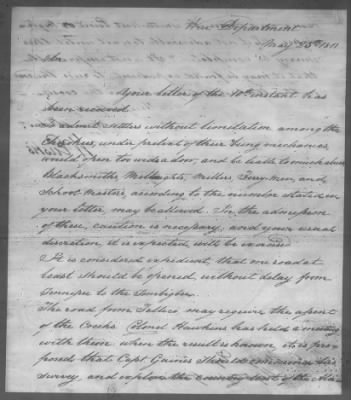 War Department
May 25th 1811
Sir
Your letter of the 10th instant has
been received.
To admit settlers without limitation among the
Cherokees, under pretext of their being mechanics,
would open too wide a door, and be liable to much abuse
Blacksmiths, Millwrights, Millers, Ferry Men, and
School Masters, according to the number stated in
your letter, may be allowed. In the admission
of these, caution is necessary, and your usual
discretion it is expected, will be exercised
It is considered expedient, that one road at
least should be opened without delay from
Tennessee to the Tombigbee.
The road from may require the assent
of the Creeks. Colonel Hawkins has held a meeting
with them when the result is known, it is pro-
posed that Capt Gaines should commence his
survey, and explore the country East of the